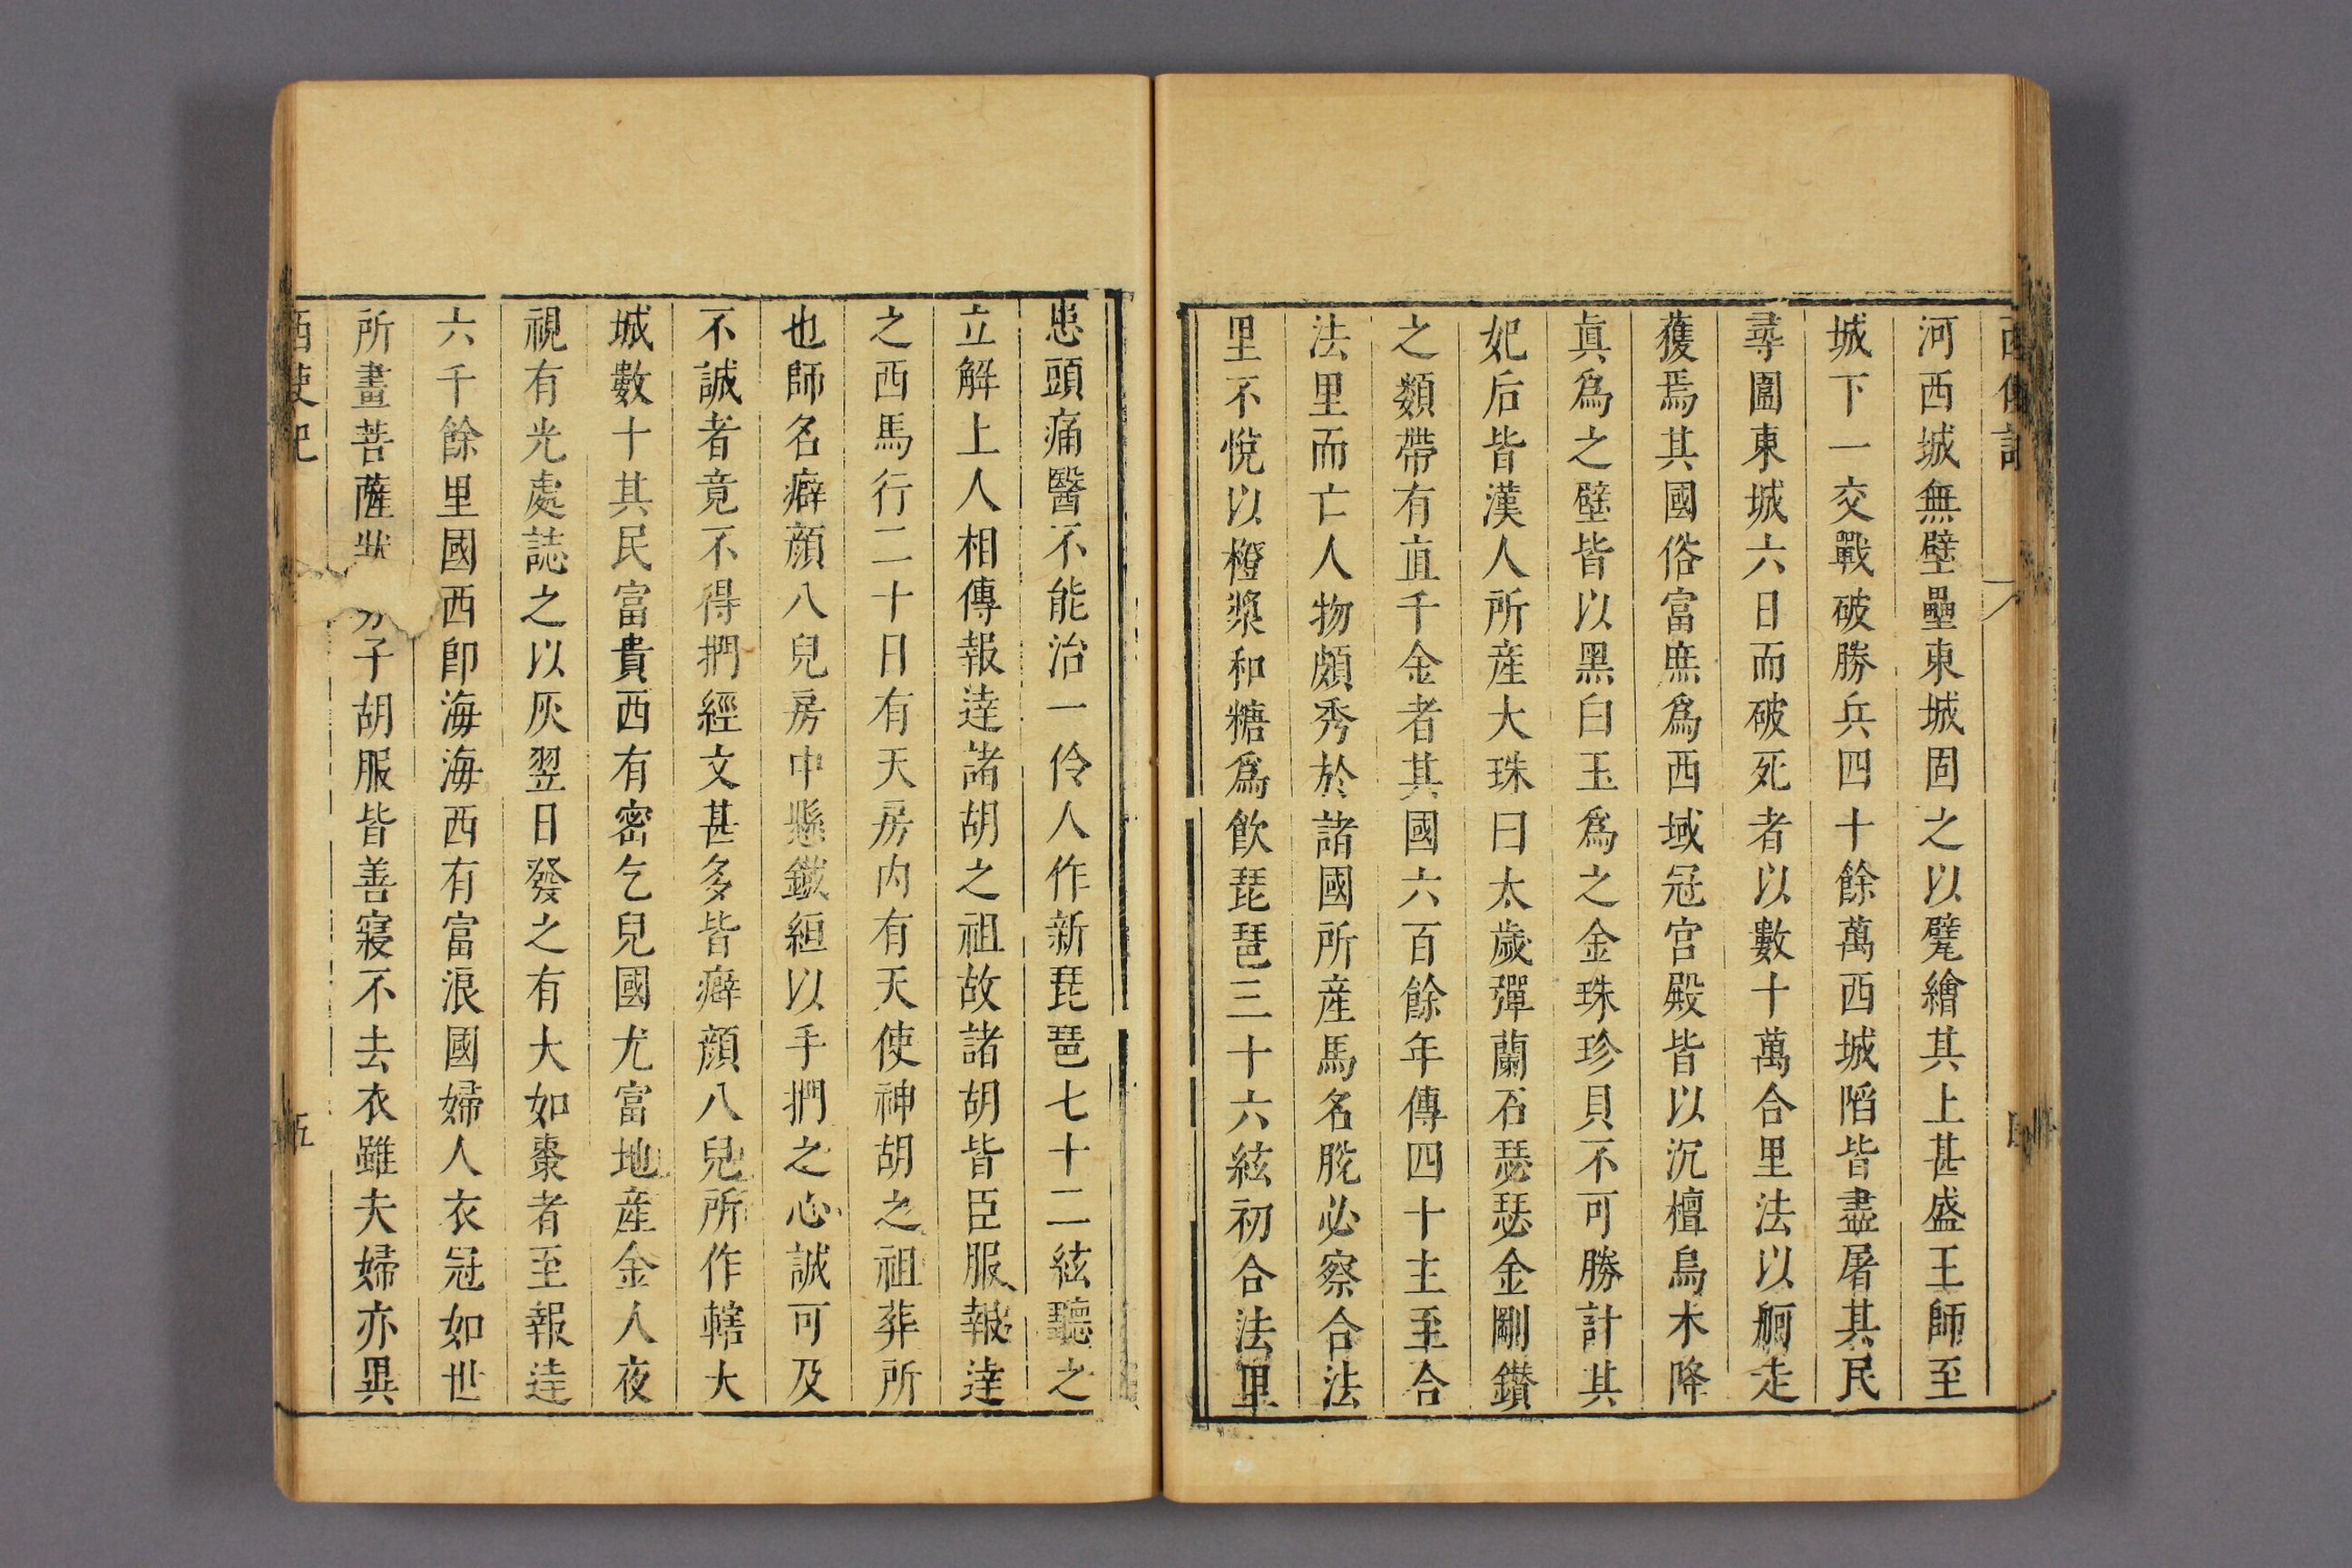 西使記
河西城無壁壘東城固之以甓繪其上甚盛王師至
城下一交戰破勝兵四十餘萬西城陷皆盡屠其民
尋圍東城六日而破死者以數十萬合里法以舸走
獲焉其國俗富庶爲西域冠宮殿皆以沉檀烏木降
眞爲之壁皆以黑白玉爲之金珠珍貝不可勝計其
妃后皆漢人所産大珠曰太歲彈蘭石瑟瑟金剛鑚
之類帶有直千金者其國六百餘年傳四十主至合
法里而亡人物頗秀於諸國所産馬名脫必察合法
里不悅以橙漿和糖爲飲琵琶三十六絃初合法里
患頭痛醫不能治一伶人作新琵琶七十二絃聽之
立解上人相傳報達諸胡之祖故諸胡皆臣服報達
之西馬行二十日有天房内有天使神胡之祖葬所
也師名癖顔八兒房中懸鐵絙以手捫之心誠可及
不誠者竟不得捫經文甚多皆癖顔八兒所作轄大
城數十其民富貴西有密乞兒國尤富地産金人夜
視有光處誌之以灰翌日發之有大如棗者至報達
六千餘里國西即海海西有富浪國婦人衣冠如世
所畫菩薩狀 子胡服皆善寢不去衣雖夫婦亦異
西使記
五